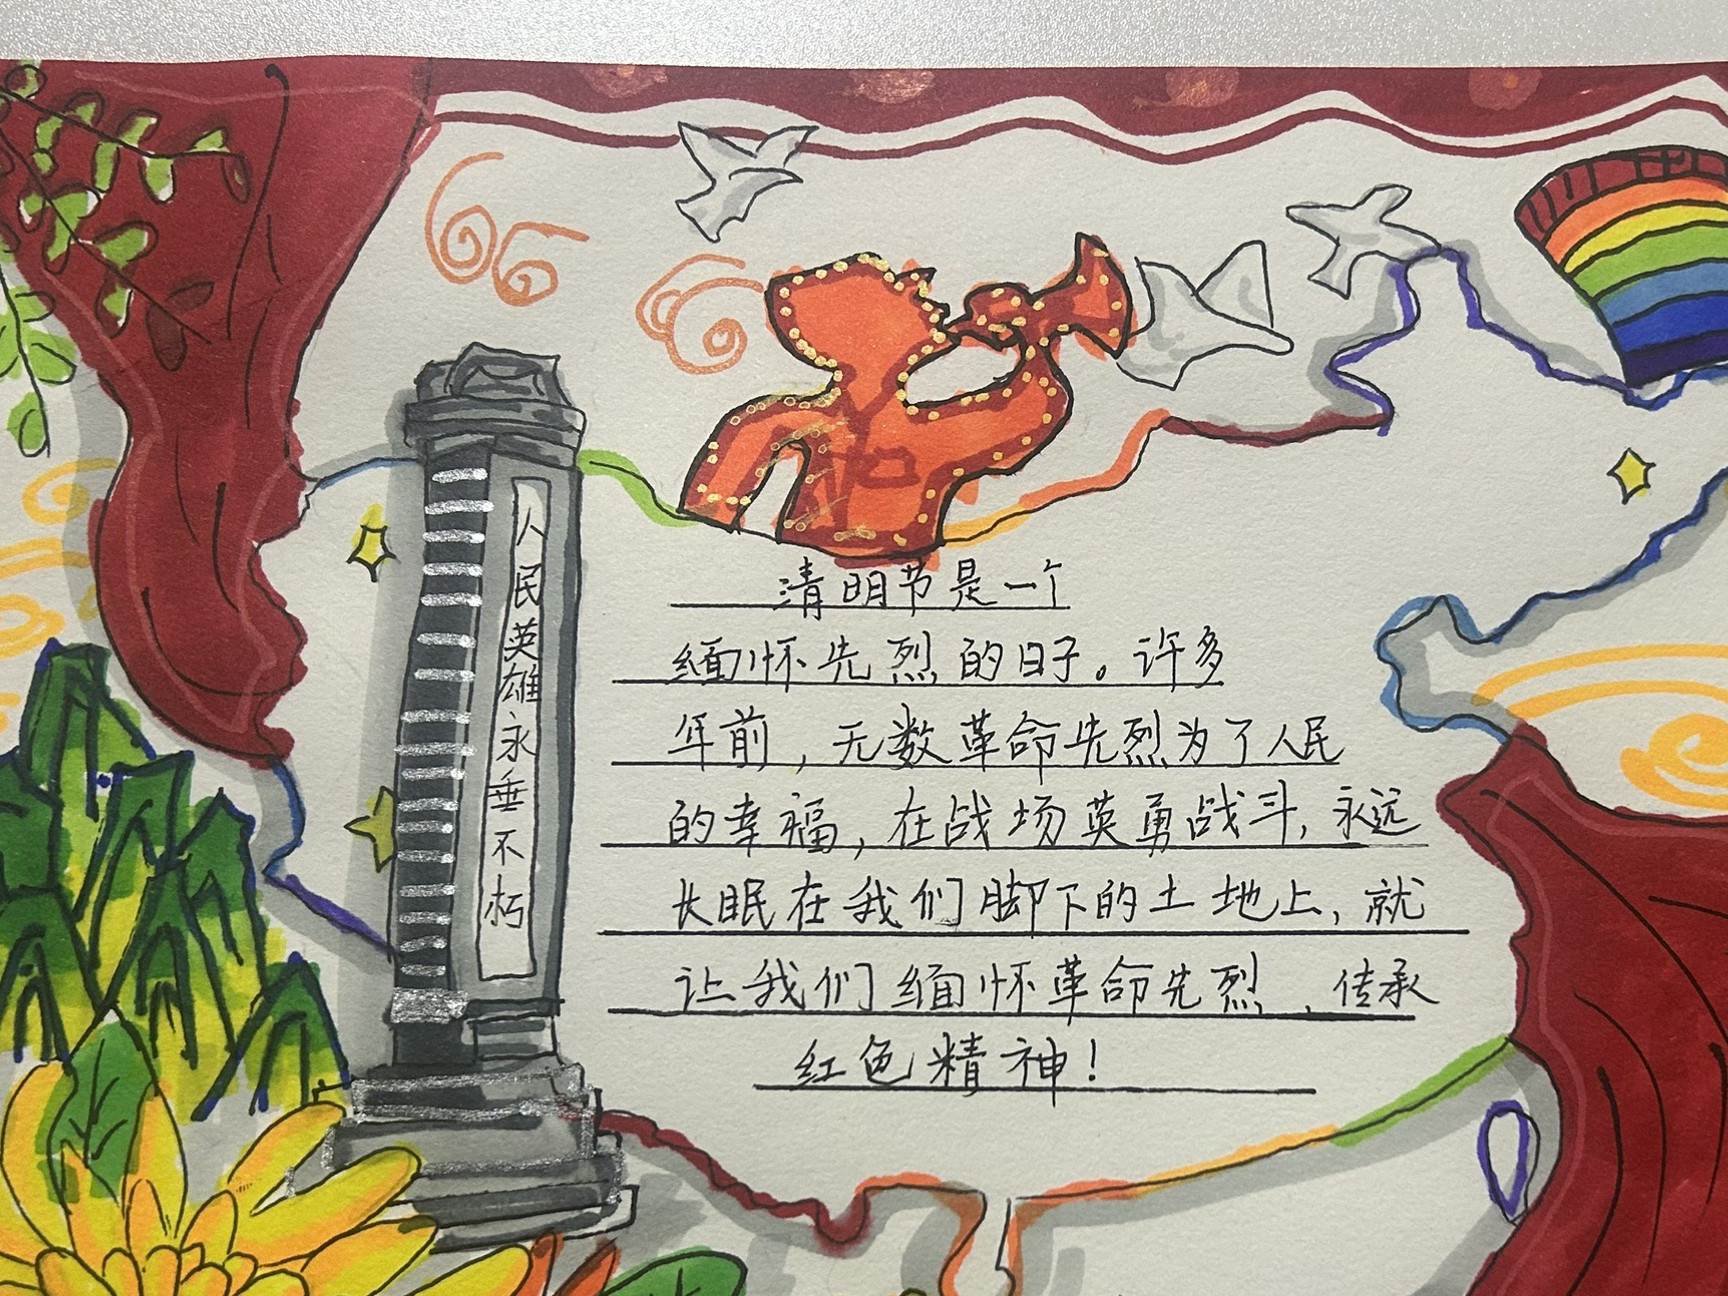 人民英雄永垂不朽
清明节是一个
缅怀先烈的日子。许多
年前，无数革命先烈为了人民
的幸福，在战场英勇战斗，永远
长眠在我们脚下的土地上，就
让我们缅怀革命先烈，传承
红色精神！